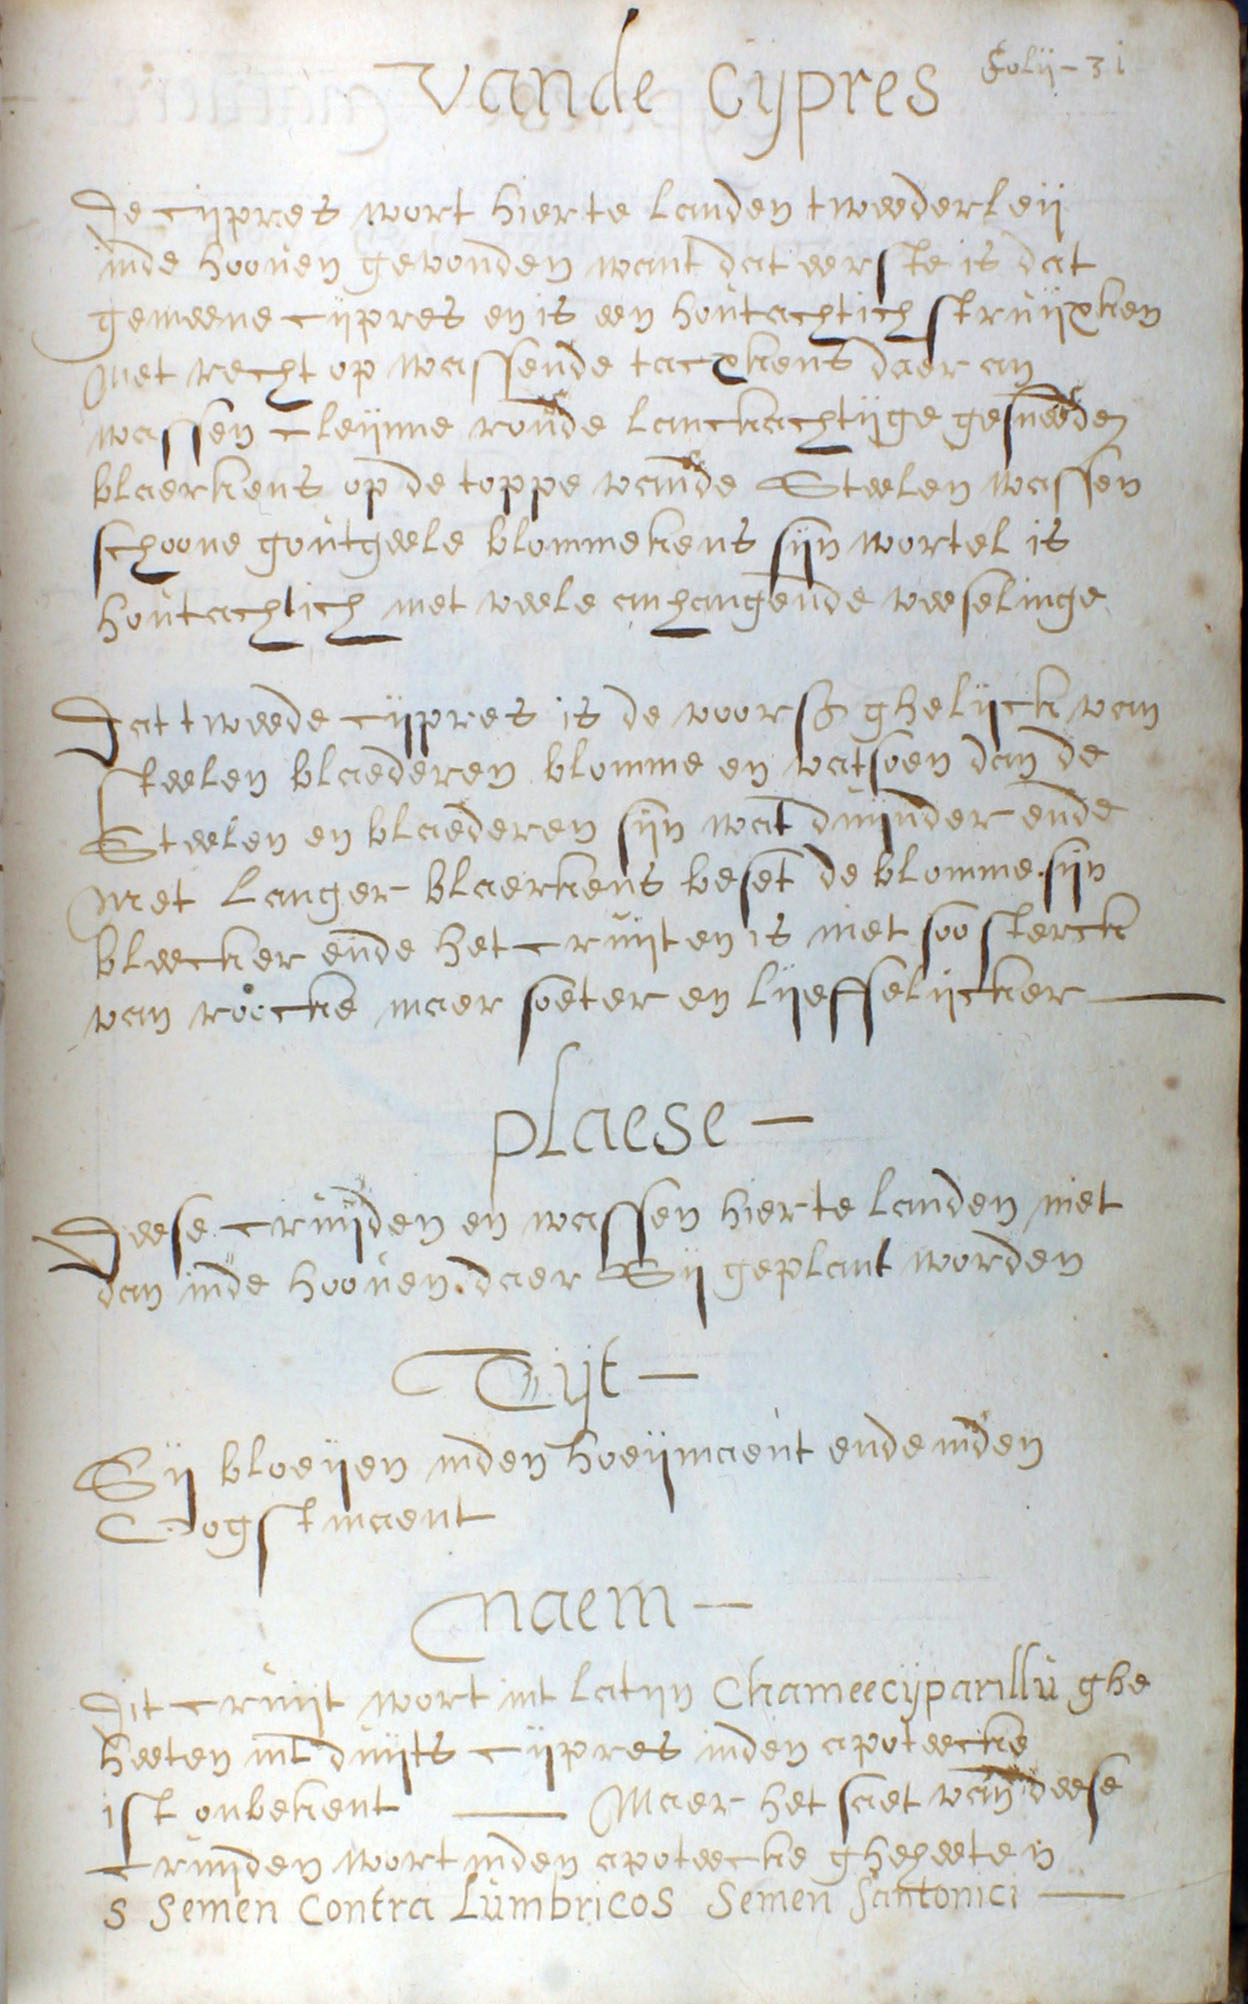 Folij - 31
Vande Cypres
De cijpres wort hier te landen tweederleij
inde hooven gevonden want dat eerste is dat
gemeene cijpres en is een houtachtich struijxken
Met recht op wassende tacxkens daer an
wassen cleijnne ronde lanckachtijge gesneeden
blaerkens op de toppe vande Steelen wassen
schoone goutgeele blommekens sijn wortel is
houtachtich met veele anhangende veeselinge
Dat tweede cijpres is de voors ghelijck van
steelen blaederen blomme en vatsoen dan de
Steelen en blaederen sijn wat dunder ende
Met langer blaerkens beset de blomme sijn
bleecker ende het cruijt en is niet soo sterck
van roocke maer soeter en lijeffelijcker
plaese -
Deese cruijden en wassen hier te landen niet
dan inde hooven daer Sij geplant worden
Tijt -
Sij bloeijen inden hoeijmaent ende inden
Oogstmaent
Naem -
Dit cruijt wort int latijn Chameecijparillu ghe
heeten int duijts cijpres inden apoteecke
ist onbekent Maer het saet van deese
cruijden wort inden apoteecke gheheeten
s Semen Contra Lumbricos Semen Santonici